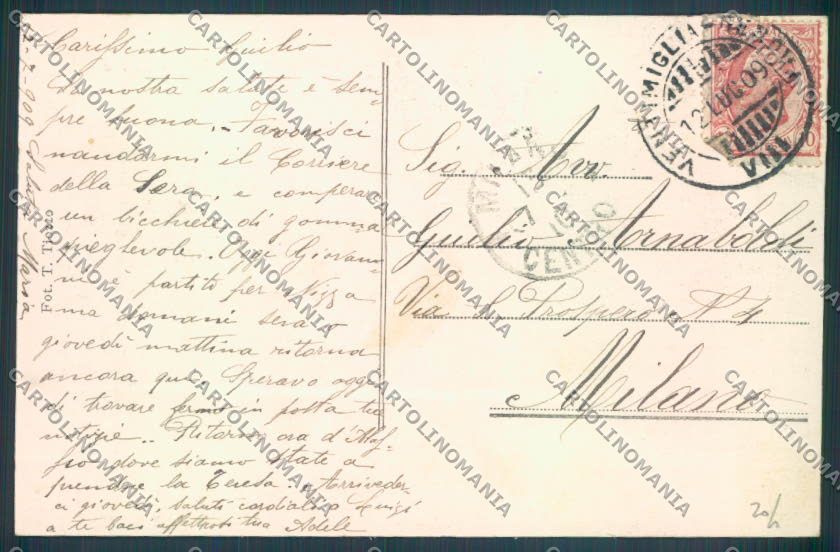 Carissimo Giulio
La nostra salute è sem-
pre buona. Favorisci
mandarmi il Corriere
della Sera, e comperar
un bicchiere di gomma
pieghevole. Oggi Giovan-
ni è partito per Nizza
ma domani sera o
giovedì mattina ritorna
ancora qui. Speravo oggi
di trovare fermo in posta tue
notizie. Ritorno ora d'
dove siamo state a
prendere la Teresa. Arriveder-
ci giovedì, saluti cordiali Luigi
a te baci affettuosi tua Adele
909 Saluti Maria
Fot. T. Tiozzo
Sig. Avv.
Giulio Arnaboldi
Via S. Prospero N 4
Milano
VENTIMIGLIA
12 LUG 09
VIA
MILANO
CENTRO
10
20/
CARTOLINOMANIA